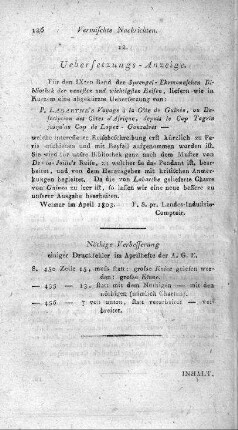 126 Vermischte Nachrichten.
12.
Uebersetzungs-Anzeige.
Für den IXten Band der Sprengel-Ehrmannschen Bi-
bliothek der neuesten und wichtigsten Reisen, liefern wir in
Kurzem eine abgekürzte Uebersetzung von:
P. LABARTHE'S Voyage à la Côte de Guinée, ou De-
scription des Côtes d'Afrique, depuis le Cap Tagrin
jusqu'au Cap de Lopez-Gonzalves —
welche interessante Reisebeschreibung erst kürzlich zu Pa-
ris erschienen und mit Beyfall aufgenommen worden ist.
Sie wird für unsre Bibliothek ganz nach dem Muster von
Reise, zu welcher sie das Pendant ist, bear-
beitet, und von dem Herausgeber mit kritischen Anmer-
kungen versehen. Da die von Labarthe gelieferte Charte
von Guinea zu leer ist, so fügen wir eine neue bessere zu
unsrer Ausgabe bearbeitet.
Weimar im April 1803. F. S. pr. Landes-Industrie-
Comptoir.
Nöthige Verbesserung
einiger Druckfehler im Aprilhefte der A. G. E.
S. 450 Zeile 15, muss statt: grosse Kette gelesen wer-
den: grosse Küste.
— 456 — 13. statt mit dem Nöthigen — mit den
nöthigen (nämlich Charten).
— 456 — 7 von unten, statt verarbeitet — ver-
breitet.
INHALT.